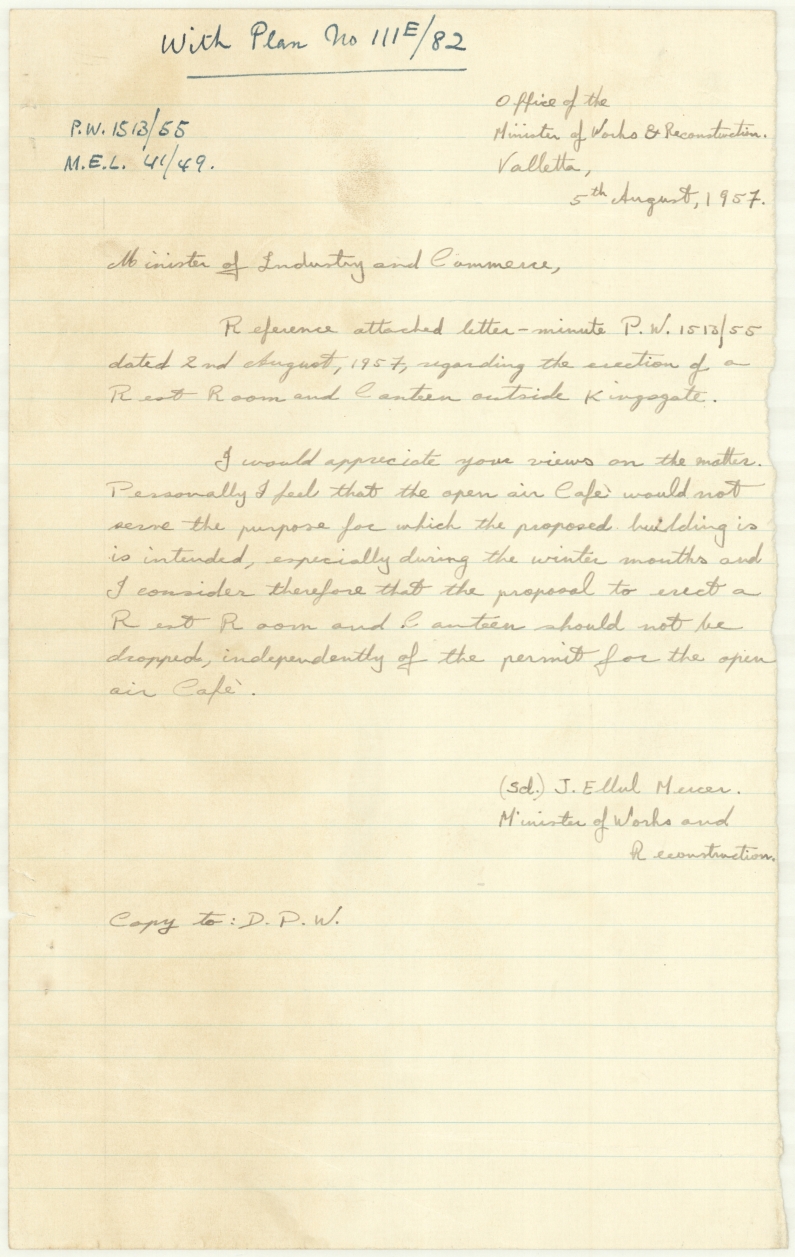 With Plan No 111E/82
Office of the
P.W. 1513/55
Minister of Works & Reconstruction.
M.E.L. 41/49.
Valletta,
5th August, 1957.
Minister of Industry and Commerce,
Reference attached letter-minute P.W. 1513/55
dated 2nd August, 1957, regarding the erection of a
Rest Room and Canteen outside Kingsgate.
I would appreciate your views on the matter.
Personally I feel that the open air Cafè would not
serve the purpose for which the proposed building is
is intended, especially during the winter months and
I consider therefore that the proposal to erect a
Rest Room and Canteen should not be
dropped, independently of the permit for the open
air Cafè.
(Sd.) J. Ellul Mercer.
Minister of Works and
Reconstruction.
Copy to: D.P.W.